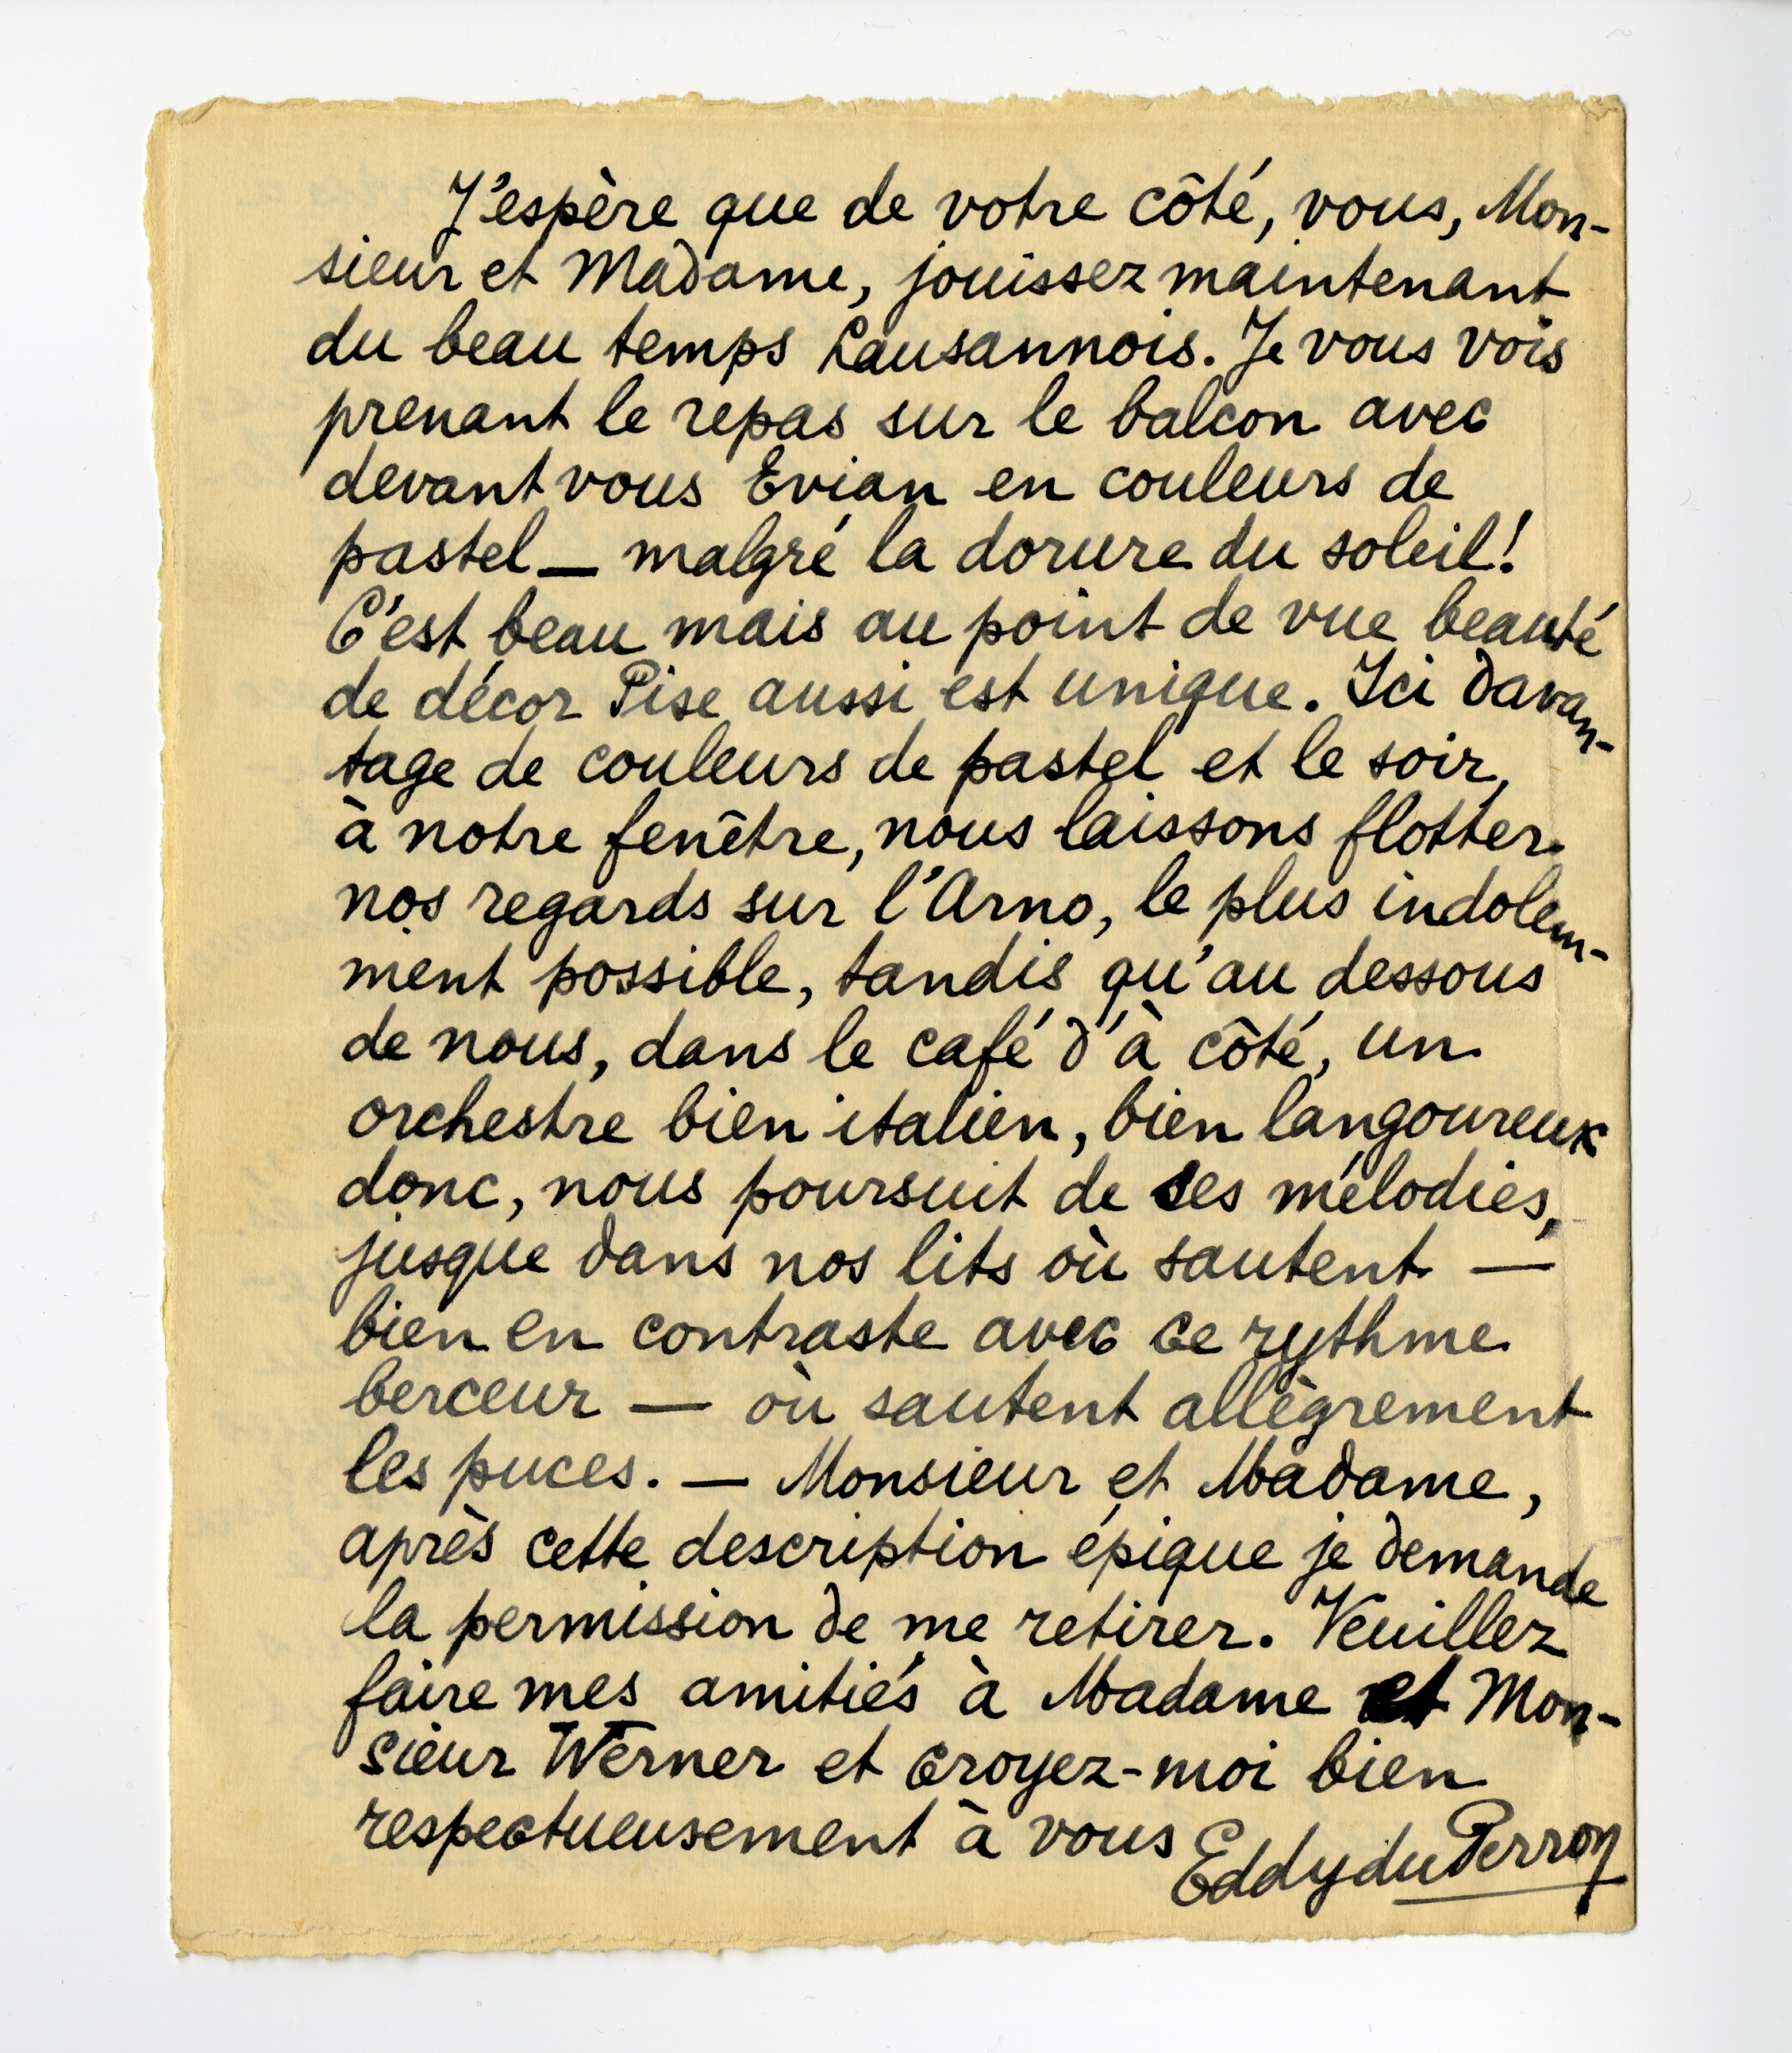 J'espère que de votre côté, vous, Mon-
sieur et Madame, jouissez maintenant
du beau temps Lausannois. Je vous vois
prenant le repas sur le balcon avec
devant vous Evian en couleurs de
pastel — malgré la dorure du soleil!
C'est beau mais au point de vue beauté
de décor Pise aussi est unique. Ici davan-
tage de couleurs de pastel et le soir,
à notre fenêtre, nous laissons flotter
nos regards sur l'Arno, le plus indolem-
ment possible, tandis qu'au dessous
de nous, dans le café d'à côté, un
orchestre bien italien, bien langoureux
donc, nous poursuit de ses mélodies,
jusque dans nos lits où sautent —
bien en contraste avec ce rythme
berceur — où sautent allègrement
les puces. — Monsieur et Madame,
après cette description épique je demande
la permission de me retirer. Veuillez
faire mes amitiés à Madame et Mon-
sieur Werner et croyez-moi bien
respectueusement à vous
Eddy du Perron